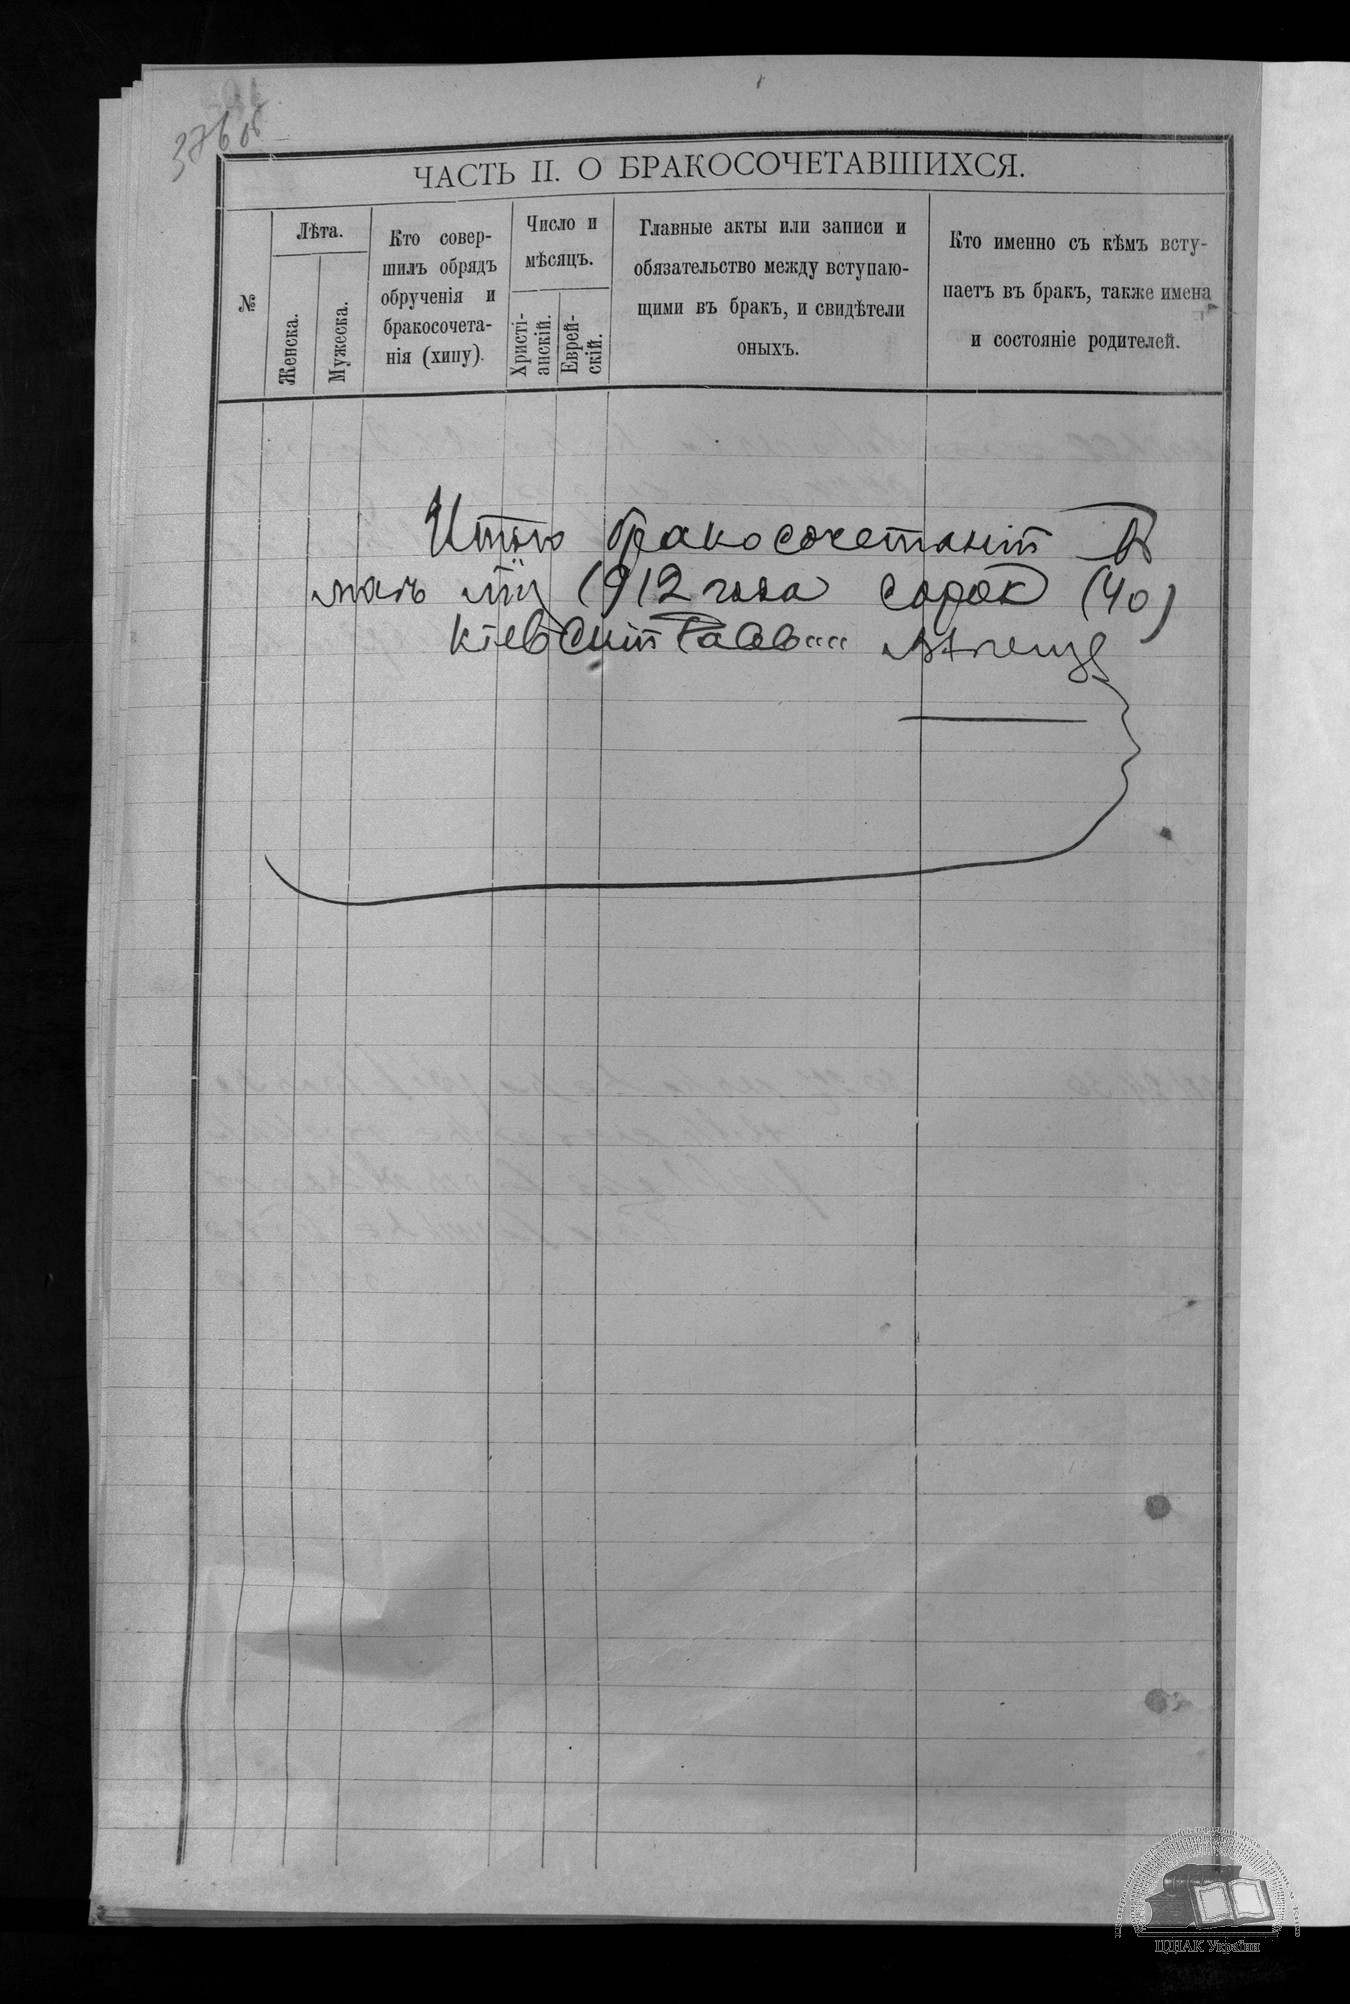 376 об
ЧАСТЬ II. О БРАКОСОЧЕТАВШИХСЯ.
№
Лѣта.
Женска.
Мужеска.
Кто совер-
шилъ обрядъ
обрученія и
бракосочета-
нія (хипу).
Число и
мѣсяцъ.
Христі-
анскій.
Еврей-
скій.
Главные акты или записи и
обязательство между вступаю-
щими въ бракъ, и свидѣтели
оныхъ.
Кто именно съ кѣмъ всту-
паетъ въ бракъ, также имена
и состояніе родителей.
Итого бракосочетаній в
маѣ мц 1912 года сорок (40)
Кіевскій Раввин
ЦДІАК України